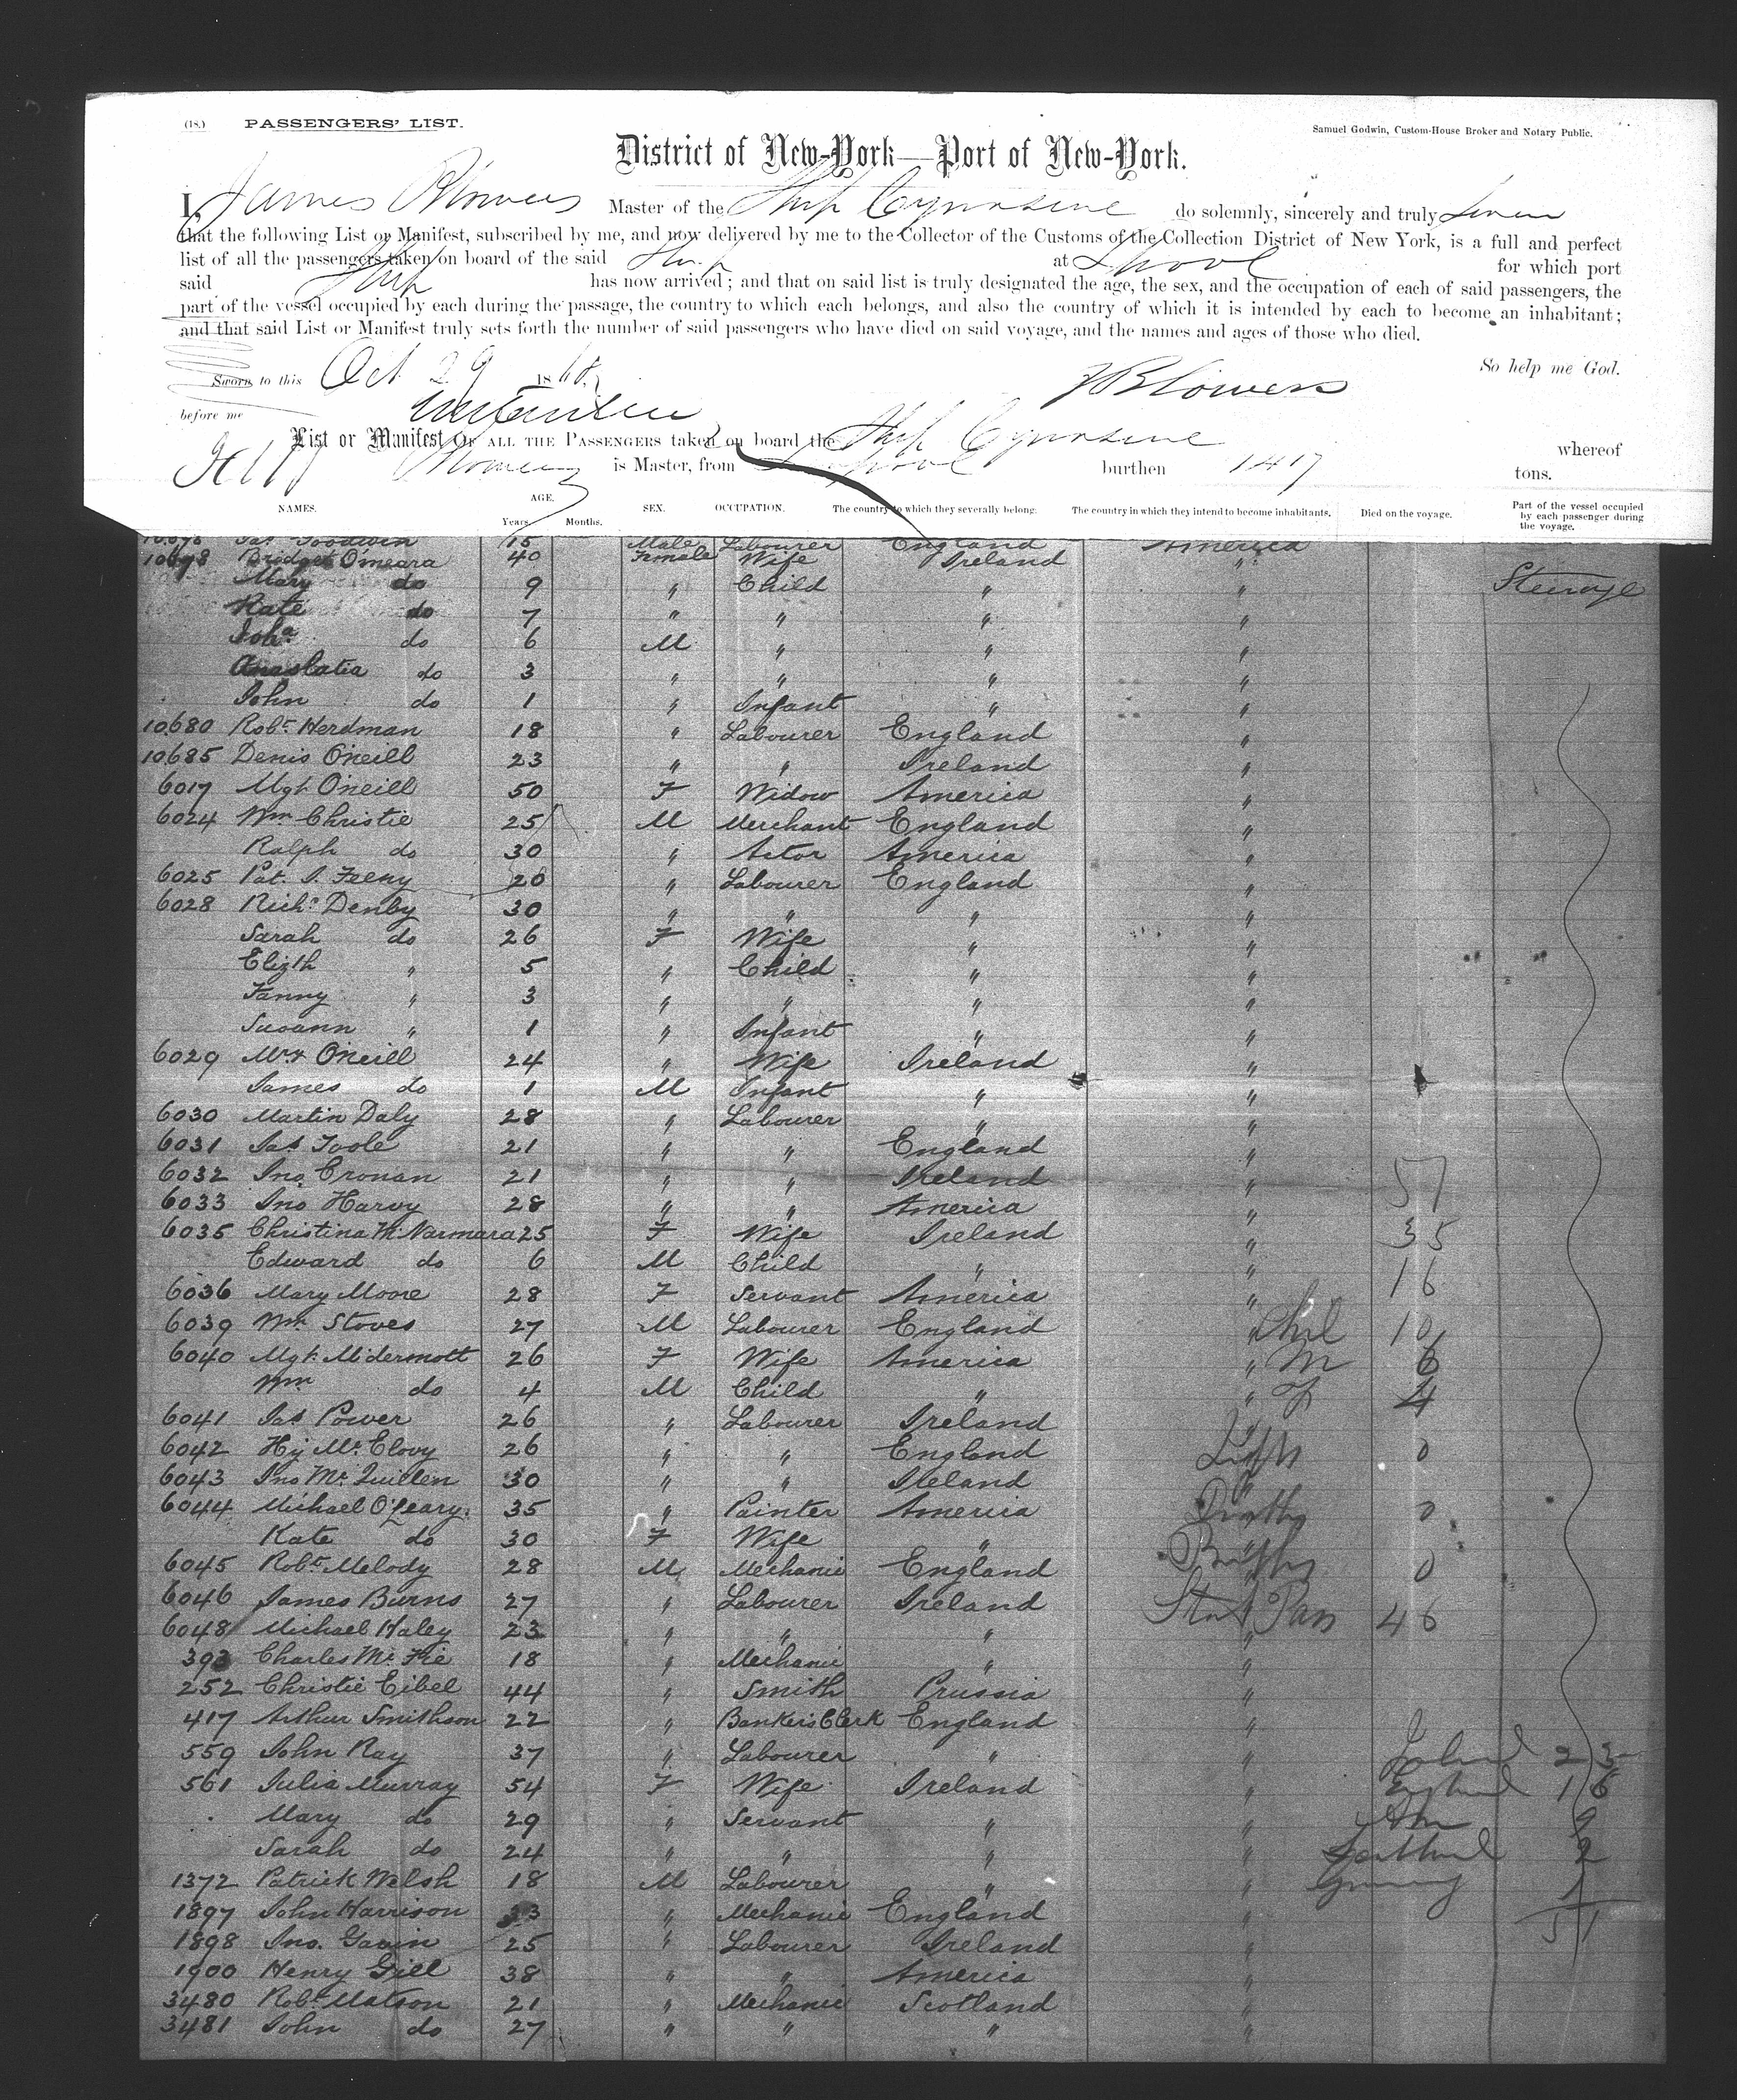 (18.) PASSENGERS' LIST.
Samuel Godwin, Custom-House Broker and Notary Public.
District of New-York—Port of New-York.
I, James Blowers Master of the Ship Cynosure do solemnly, sincerely and truly swear
that the following List or Manifest, subscribed by me, and now delivered by me to the Collector of the Customs of the Collection District of New York, is a full and perfect
list of all the passengers taken on board of the said Ship at L'pool for which port
said Ship has now arrived; and that on said list is truly designated the age, the sex, and the occupation of each of said passengers, the
part of the vessel occupied by each during the passage, the country to which each belongs, and also the country of which it is intended by each to become an inhabitant;
and that said List or Manifest truly sets forth the number of said passengers who have died on said voyage, and the names and ages of those who died.
So help me God.
Sworn to this Oct 29 186
before me
J Blowers
List or Manifest OF ALL THE PASSENGERS taken on board the Ship Cynosure whereof
is Master, from burthen 1417 tons.
NAMES. AGE. Years. Months. SEX. OCCUPATION. The country to which they severally belong. The country in which they intend to become inhabitants. Died on the voyage. Part of the vessel occupied by each passenger during the voyage.
Jas Goodwin 15 Male Labourer England America
Bridget O'meara 40 Female Wife Ireland "
Mary do 9 " Child " " Steerage
Kate do 7 " " " "
Joha do 6 M " " "
Anastatia do 3 " " " "
John do 1 " Infant " "
10,680 Robt Herdman 18 " Labourer England "
10,685 Denis O'neill 23 " " Ireland "
6017 Mgt O'neill 50 F Widow America "
6024 Wm Christie 25 M Merchant England "
Ralph do 30 " Actor America "
6025 Pat. J. Feeny 20 " Labourer England "
6028 Richd Denby 30 " " " "
Sarah do 26 F Wife " "
Elizth " 5 " Child " "
Fanny " 3 " " " "
Susann " 1 " Infant " "
6029 Mrs O'neill 24 " Wife Ireland "
James do 1 M Infant " "
6030 Martin Daly 28 " Labourer " "
6031 Jas Toole 21 " " England "
6032 Jno. Cronan 21 " " Ireland " 57
6033 Jno Harvy 28 " " America "
6035 Christina McNarmara 25 F Wife Ireland " 35
Edward do 6 M Child " " 16
6036 Mary Moore 28 F Servant America "
6039 Wm Stoves 27 M Labourer England " Chil 10
6040 Mgt McDermott 26 F Wife America " M 6
Wm do 4 M Child " " F 4
6041 Jas Power 26 " Labourer Ireland "
6042 Hy Mc Elovy 26 " " England " 0
6043 Jno Mc Quillen 30 " " Ireland "
6044 Michael O'Leary 35 " Painter America " Deaths 0
Kate do 30 F Wife " "
6045 Robt Melody 28 M Mechanic England " Births 0
6046 James Burns 27 " Labourer Ireland " Pass 46
6048 Michael Haley 23 " " " "
393 Charles Mc Fie 18 " Mechanic " "
252 Christie Eibel 44 " Smith Prussia "
417 Arthur Smithson 22 " Bankers Clerk England "
559 John Ray 37 " Labourer " " Ireland 23
561 Julia Murray 54 F Wife Ireland " England 16
Mary do 29 " Servant " " Am 9
Sarah do 24 " " " " Scotland 2
1372 Patrick Welsh 18 M Labourer " " Germany 1
1897 John Harrison 33 " Mechanic England " 51
1898 Jno. Gavin 25 " Labourer Ireland "
1900 Henry Gill 38 " " America "
3480 Robt Matson 21 " Mechanic Scotland "
3481 John do 27 " " " "